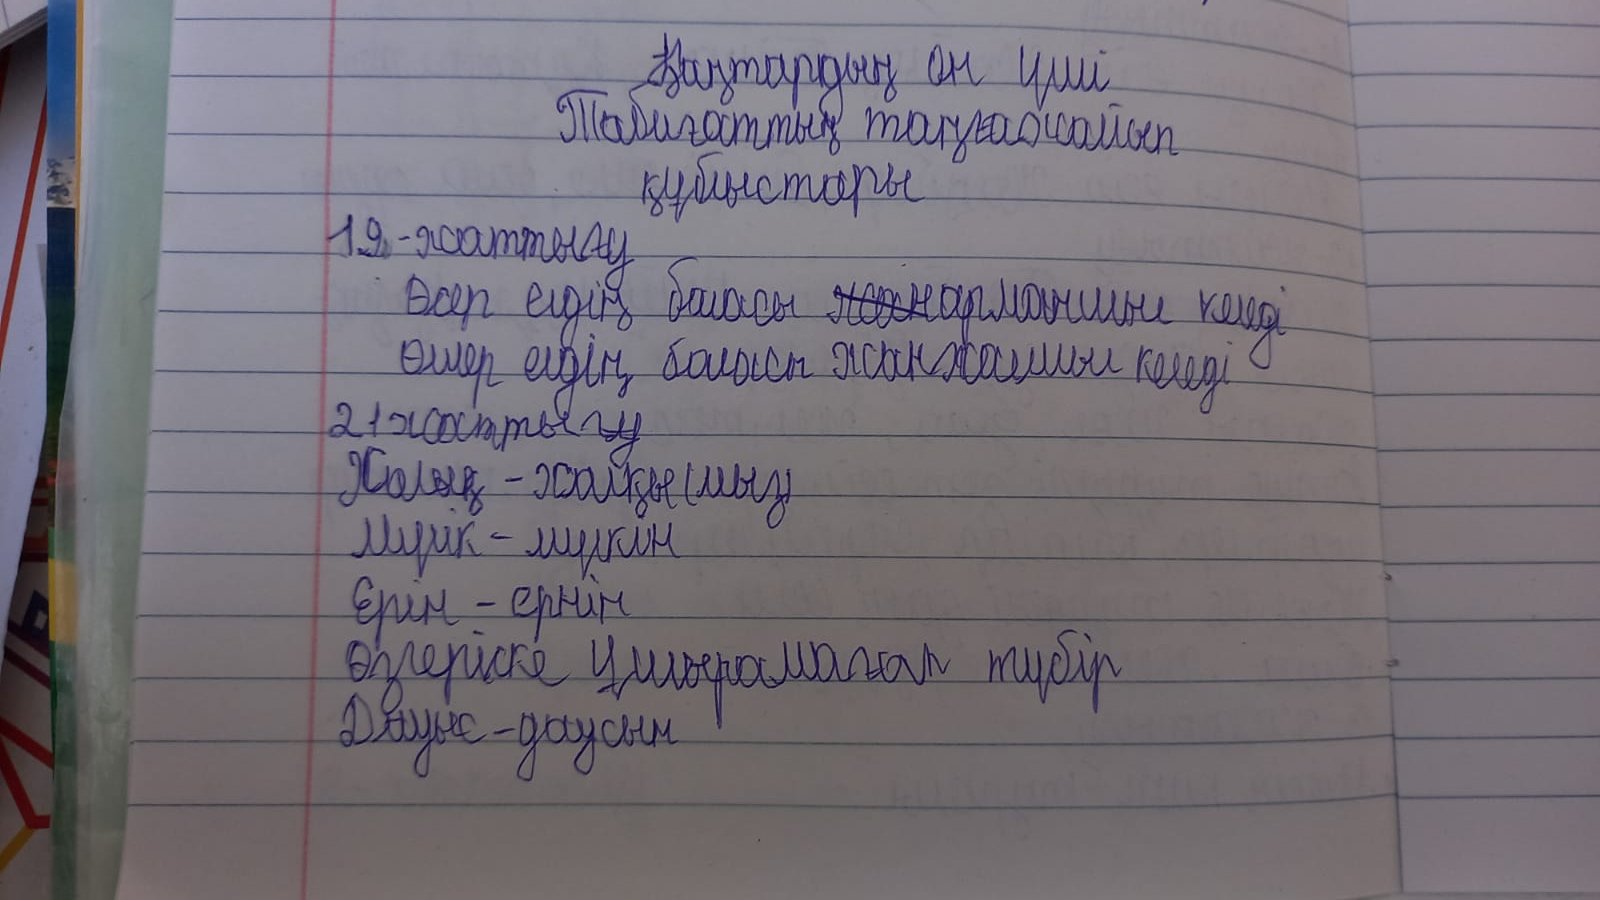 Қаңтардың он үші
Табиғаттың таңғажайып
құбыстары
19-жаттығу
Өсер елдің баласы жанарманшыл келеді
Өшер елдің баласы жанжалшыл келеді
21 жаттығу
Халық - халқы(мыз)
Мүлік - мүлкін
Ерін - ернін
Өзгеріске ұшырамаған түбір
Дауыс - даусын